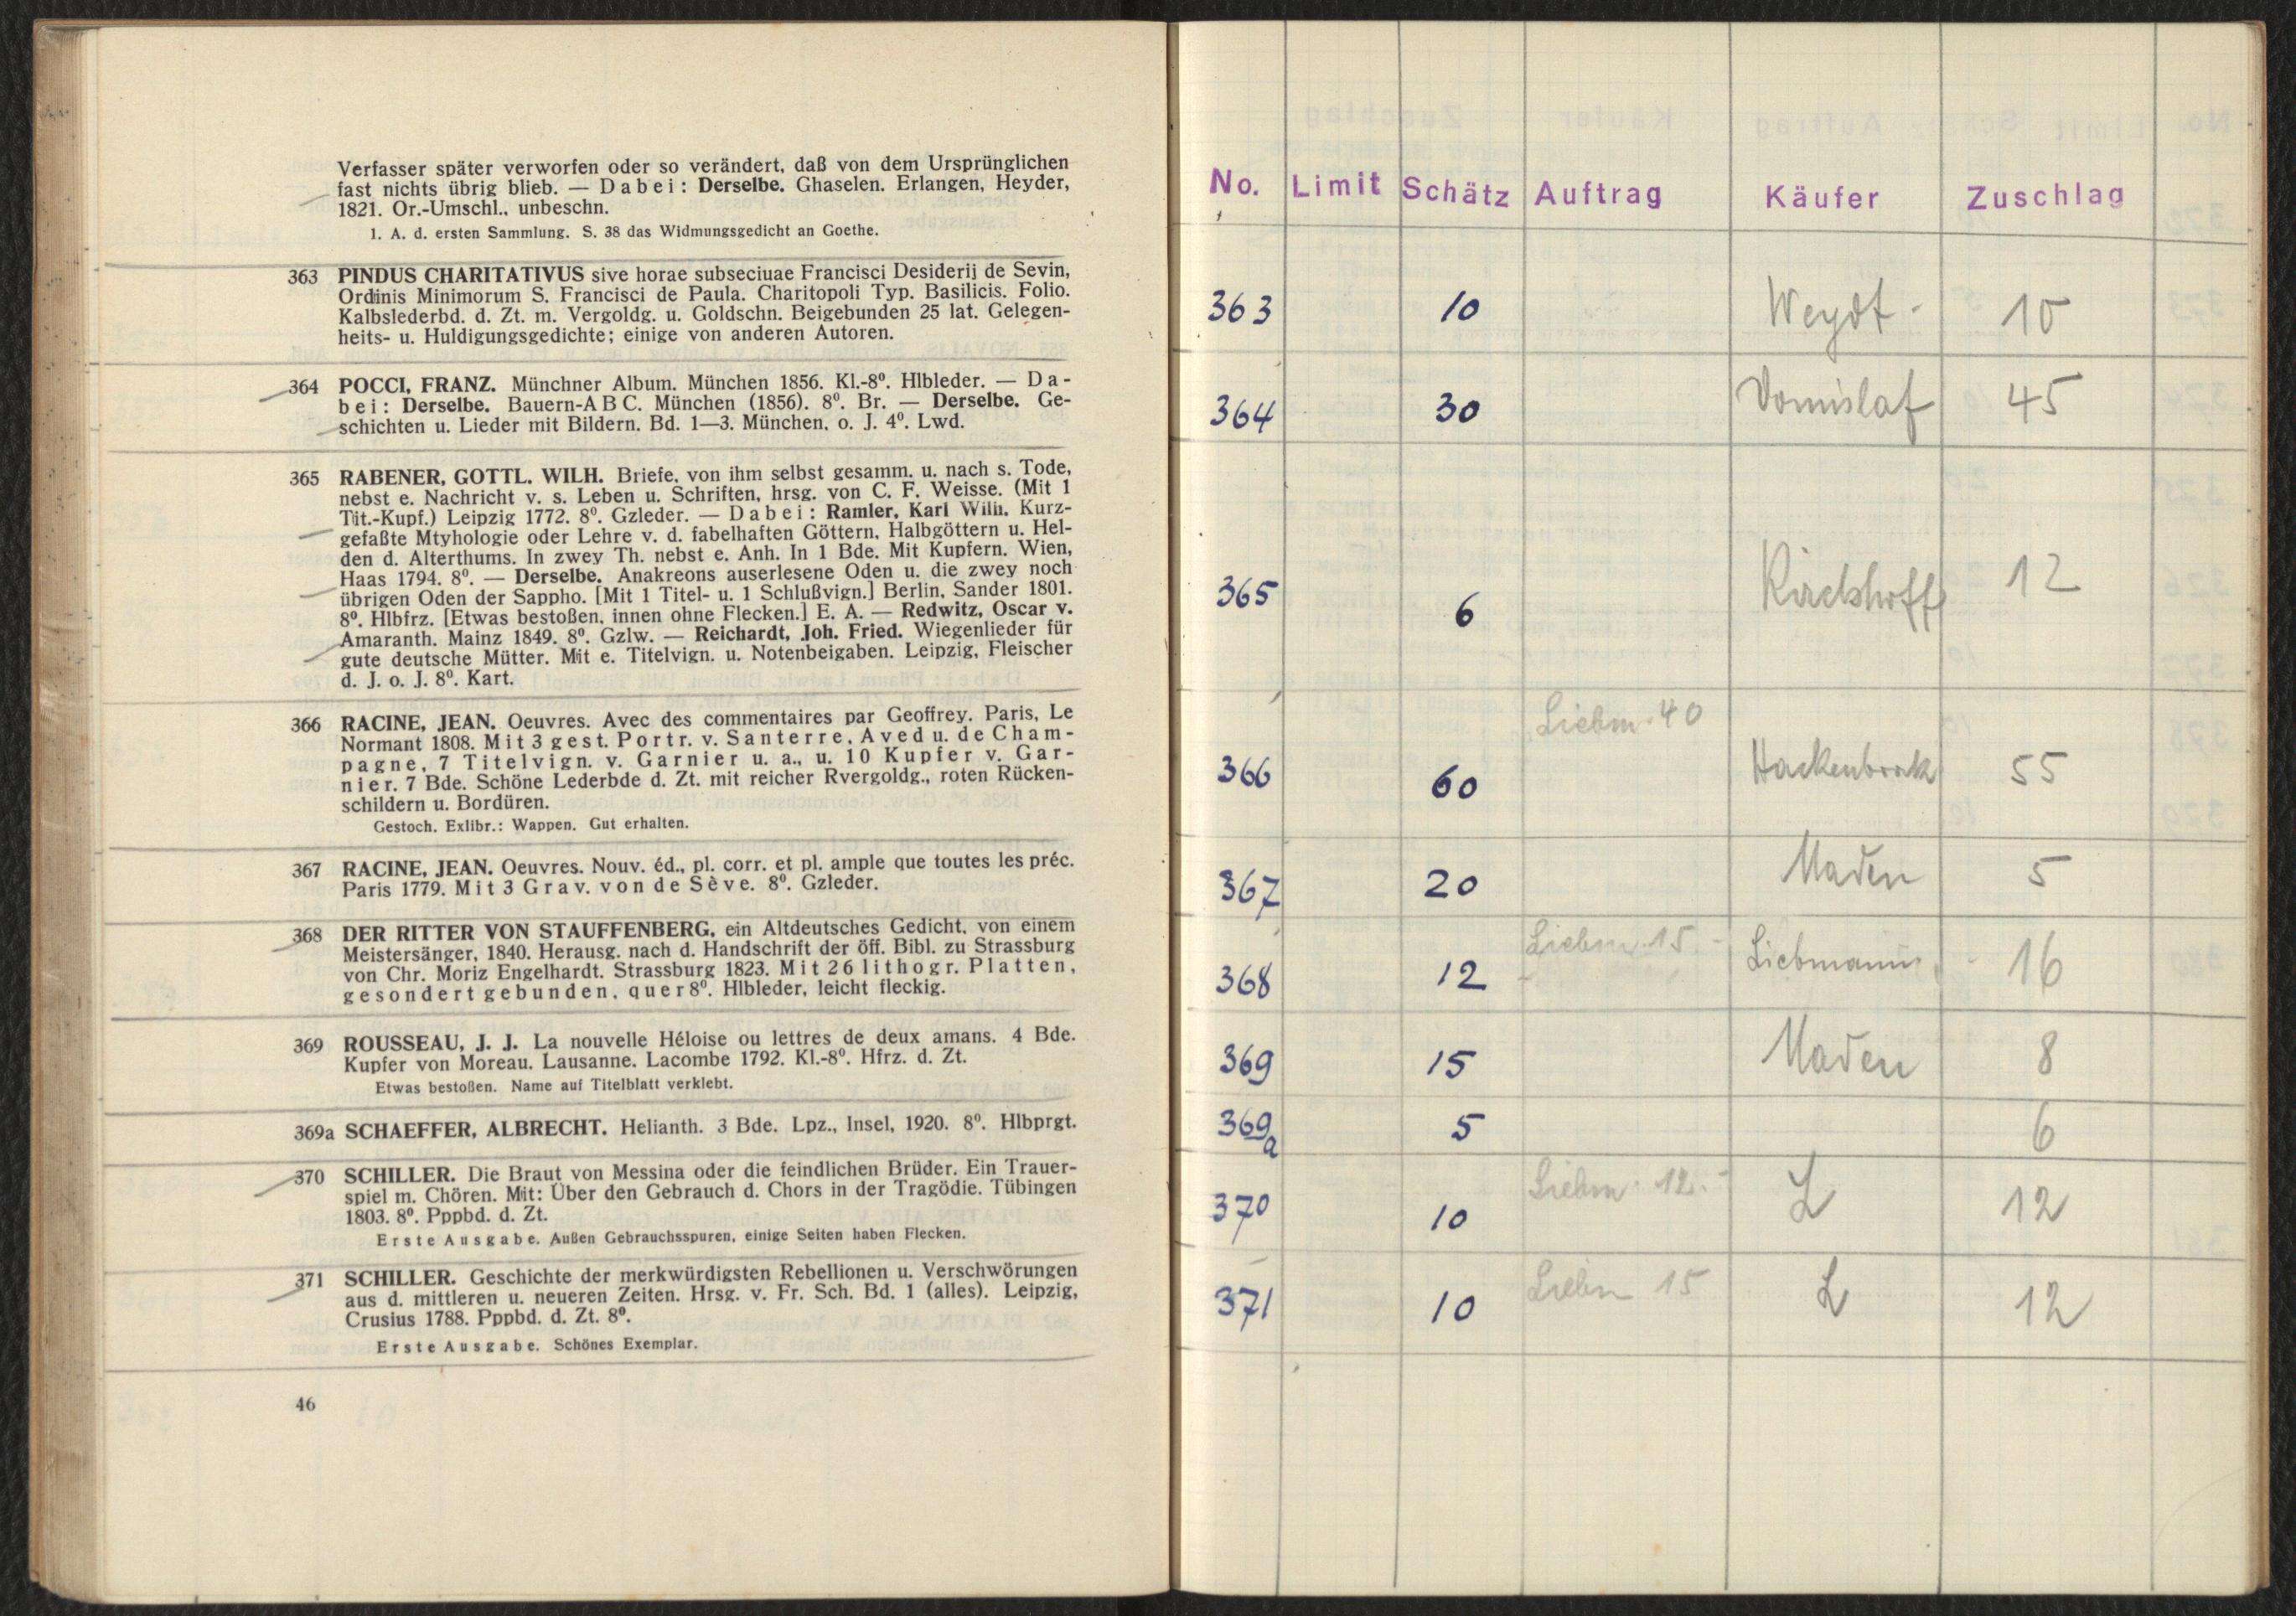 Verfasser später verworfen oder so verändert, daß von dem Ursprünglichen
fast nichts übrig blieb. — Dabei: Derselbe. Ghaselen. Erlangen, Heyder,
1821. Or.-Umschl., unbeschn.
1. A. d. ersten Sammlung. S. 38 das Widmungsgedicht an Goethe.
363 PINDUS CHARITATIVUS sive horae subseciuae Francisci Desiderij de Sevin,
Ordinis Minimorum S. Francisci de Paula. Charitopoli Typ. Basilicis. Folio.
Kalbslederbd. d. Zt. m. Vergoldg. u. Goldschn. Beigebunden 25 lat. Gelegen-
heits- u. Huldigungsgedichte; einige von anderen Autoren.
364 POCCI, FRANZ. Münchner Album. München 1856. Kl.-8⁰. Hlbleder. — Da-
bei: Derselbe. Bauern-ABC. München (1856). 8⁰. Br. — Derselbe. Ge-
schichten u. Lieder mit Bildern. Bd. 1—3. München, o. J. 4⁰. Lwd.
365 RABENER, GOTTL. WILH. Briefe, von ihm selbst gesamm. u. nach s. Tode,
nebst e. Nachricht v. s. Leben u. Schriften, hrsg. von C. F. Weisse. (Mit 1
Tit.-Kupf.) Leipzig 1772. 8⁰. Gzleder. — Dabei: Ramler, Karl Wilh. Kurz-
gefaßte Mtyhologie oder Lehre v. d. fabelhaften Göttern, Halbgöttern u. Hel-
den d. Alterthums. In zwey Th. nebst e. Anh. In 1 Bde. Mit Kupfern. Wien,
Haas 1794. 8⁰. — Derselbe. Anakreons auserlesene Oden u. die zwey noch
übrigen Oden der Sappho. [Mit 1 Titel- u. 1 Schlußvign.] Berlin, Sander 1801.
8⁰. Hlbfrz. [Etwas bestoßen, innen ohne Flecken.] E. A. — Redwitz, Oscar v.
Amaranth. Mainz 1849. 8⁰. Gzlw. — Reichardt, Joh. Fried. Wiegenlieder für
gute deutsche Mütter. Mit e. Titelvign. u. Notenbeigaben. Leipzig, Fleischer
d. J. o. J. 8⁰. Kart.
366 RACINE, JEAN. Oeuvres. Avec des commentaires par Geoffrey. Paris, Le
Normant 1808. Mit 3 gest. Portr. v. Santerre, Aved u. de Cham-
pagne, 7 Titelvign. v. Garnier u. a., u. 10 Kupfer v. Gar-
nier. 7 Bde. Schöne Lederbde d. Zt. mit reicher Rvergoldg., roten Rücken-
schildern u. Bordüren.
Gestoch. Exlibr.: Wappen. Gut erhalten.
367 RACINE, JEAN. Oeuvres. Nouv. éd., pl. corr. et pl. ample que toutes les préc.
Paris 1779. Mit 3 Grav. von de Sève. 8⁰. Gzleder.
368 DER RITTER VON STAUFFENBERG, ein Altdeutsches Gedicht, von einem
Meistersänger, 1840. Herausg. nach d. Handschrift der öff. Bibl. zu Strassburg
von Chr. Moriz Engelhardt. Strassburg 1823. Mit 26 lithogr. Platten,
gesondert gebunden, quer 8⁰. Hlbleder, leicht fleckig.
369 ROUSSEAU, J. J. La nouvelle Héloise ou lettres de deux amans. 4 Bde.
Kupfer von Moreau. Lausanne. Lacombe 1792. Kl.-8⁰. Hfrz. d. Zt.
Etwas bestoßen. Name auf Titelblatt verklebt.
369a SCHAEFFER, ALBRECHT. Helianth. 3 Bde. Lpz., Insel, 1920. 8⁰. Hlbprgt.
370 SCHILLER. Die Braut von Messina oder die feindlichen Brüder. Ein Trauer-
spiel m. Chören. Mit: Über den Gebrauch d. Chors in der Tragödie. Tübingen
1803. 8⁰. Pppbd. d. Zt.
Erste Ausgabe. Außen Gebrauchsspuren, einige Seiten haben Flecken.
371 SCHILLER. Geschichte der merkwürdigsten Rebellionen u. Verschwörungen
aus d. mittleren u. neueren Zeiten. Hrsg. v. Fr. Sch. Bd. 1 (alles). Leipzig,
Crusius 1788. Pppbd. d. Zt. 8⁰.
Erste Ausgabe. Schönes Exemplar.
46
No. Limit Schätz Auftrag Käufer Zuschlag
363 10 Weydt 10
364 30 45
365 6 Kirchhoff 12
366 60 Liebm. 40 Hackenbrok 55
367 20 Maden 5
368 12 Liebm. 15.- Liebmann 16
369 15 Maden 8
369a 5 6
370 10 Liebm. 12.- L 12
371 10 Liebm 15 L 12